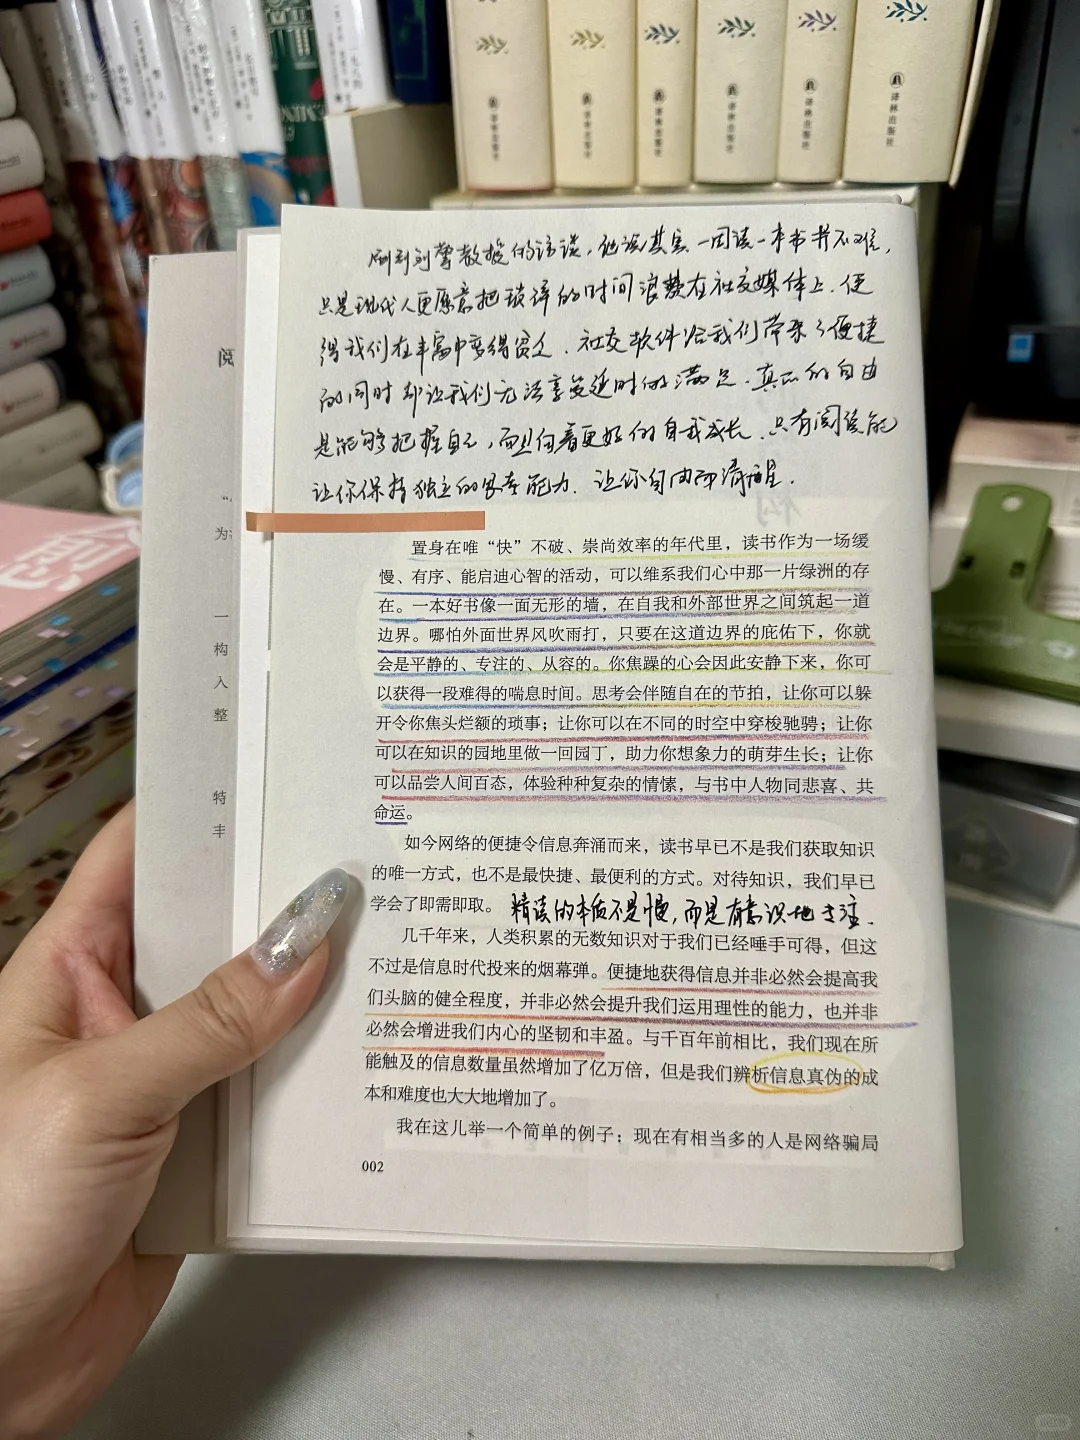 译林出版社
译林出版社
译林出版社
译林出版社
译林出版社
译林出版社
刷到刘擎教授的访谈，他说其实一周读一本书并不难，
只是现代人更愿意把琐碎的时间浪费在社交媒体上，使
得我们在丰富中变得贫乏．社交软件给我们带来了便捷
的同时却让我们无法享受延时的满足．真正的自由
是能够把握自己，而且向着更好的自我成长．只有阅读能
让你保持独立的思考能力．让你自由而清醒．
置身在唯“快”不破、崇尚效率的年代里，读书作为一场缓
慢、有序、能启迪心智的活动，可以维系我们心中那一片绿洲的存
在。一本好书像一面无形的墙，在自我和外部世界之间筑起一道
边界。哪怕外面世界风吹雨打，只要在这道边界的庇佑下，你就
会是平静的、专注的、从容的。你焦躁的心会因此安静下来，你可
以获得一段难得的喘息时间。思考会伴随自在的节拍，让你可以躲
开令你焦头烂额的琐事；让你可以在不同的时空中穿梭驰骋；让你
可以在知识的园地里做一回园丁，助力你想象力的萌芽生长；让你
可以品尝人间百态，体验种种复杂的情愫，与书中人物同悲喜、共
命运。
如今网络的便捷令信息奔涌而来，读书早已不是我们获取知识
的唯一方式，也不是最快捷、最便利的方式。对待知识，我们早已
学会了即需即取。 精读的本质不是慢，而是有意识地专注．
几千年来，人类积累的无数知识对于我们已经唾手可得，但这
不过是信息时代投来的烟幕弹。便捷地获得信息并非必然会提高我
们头脑的健全程度，并非必然会提升我们运用理性的能力，也并非
必然会增进我们内心的坚韧和丰盈。与千百年前相比，我们现在所
能触及的信息数量虽然增加了亿万倍，但是我们辨析信息真伪的成
本和难度也大大地增加了。
我在这儿举一个简单的例子：现在有相当多的人是网络骗局
002
阅
为
一
构
入
整
特
丰